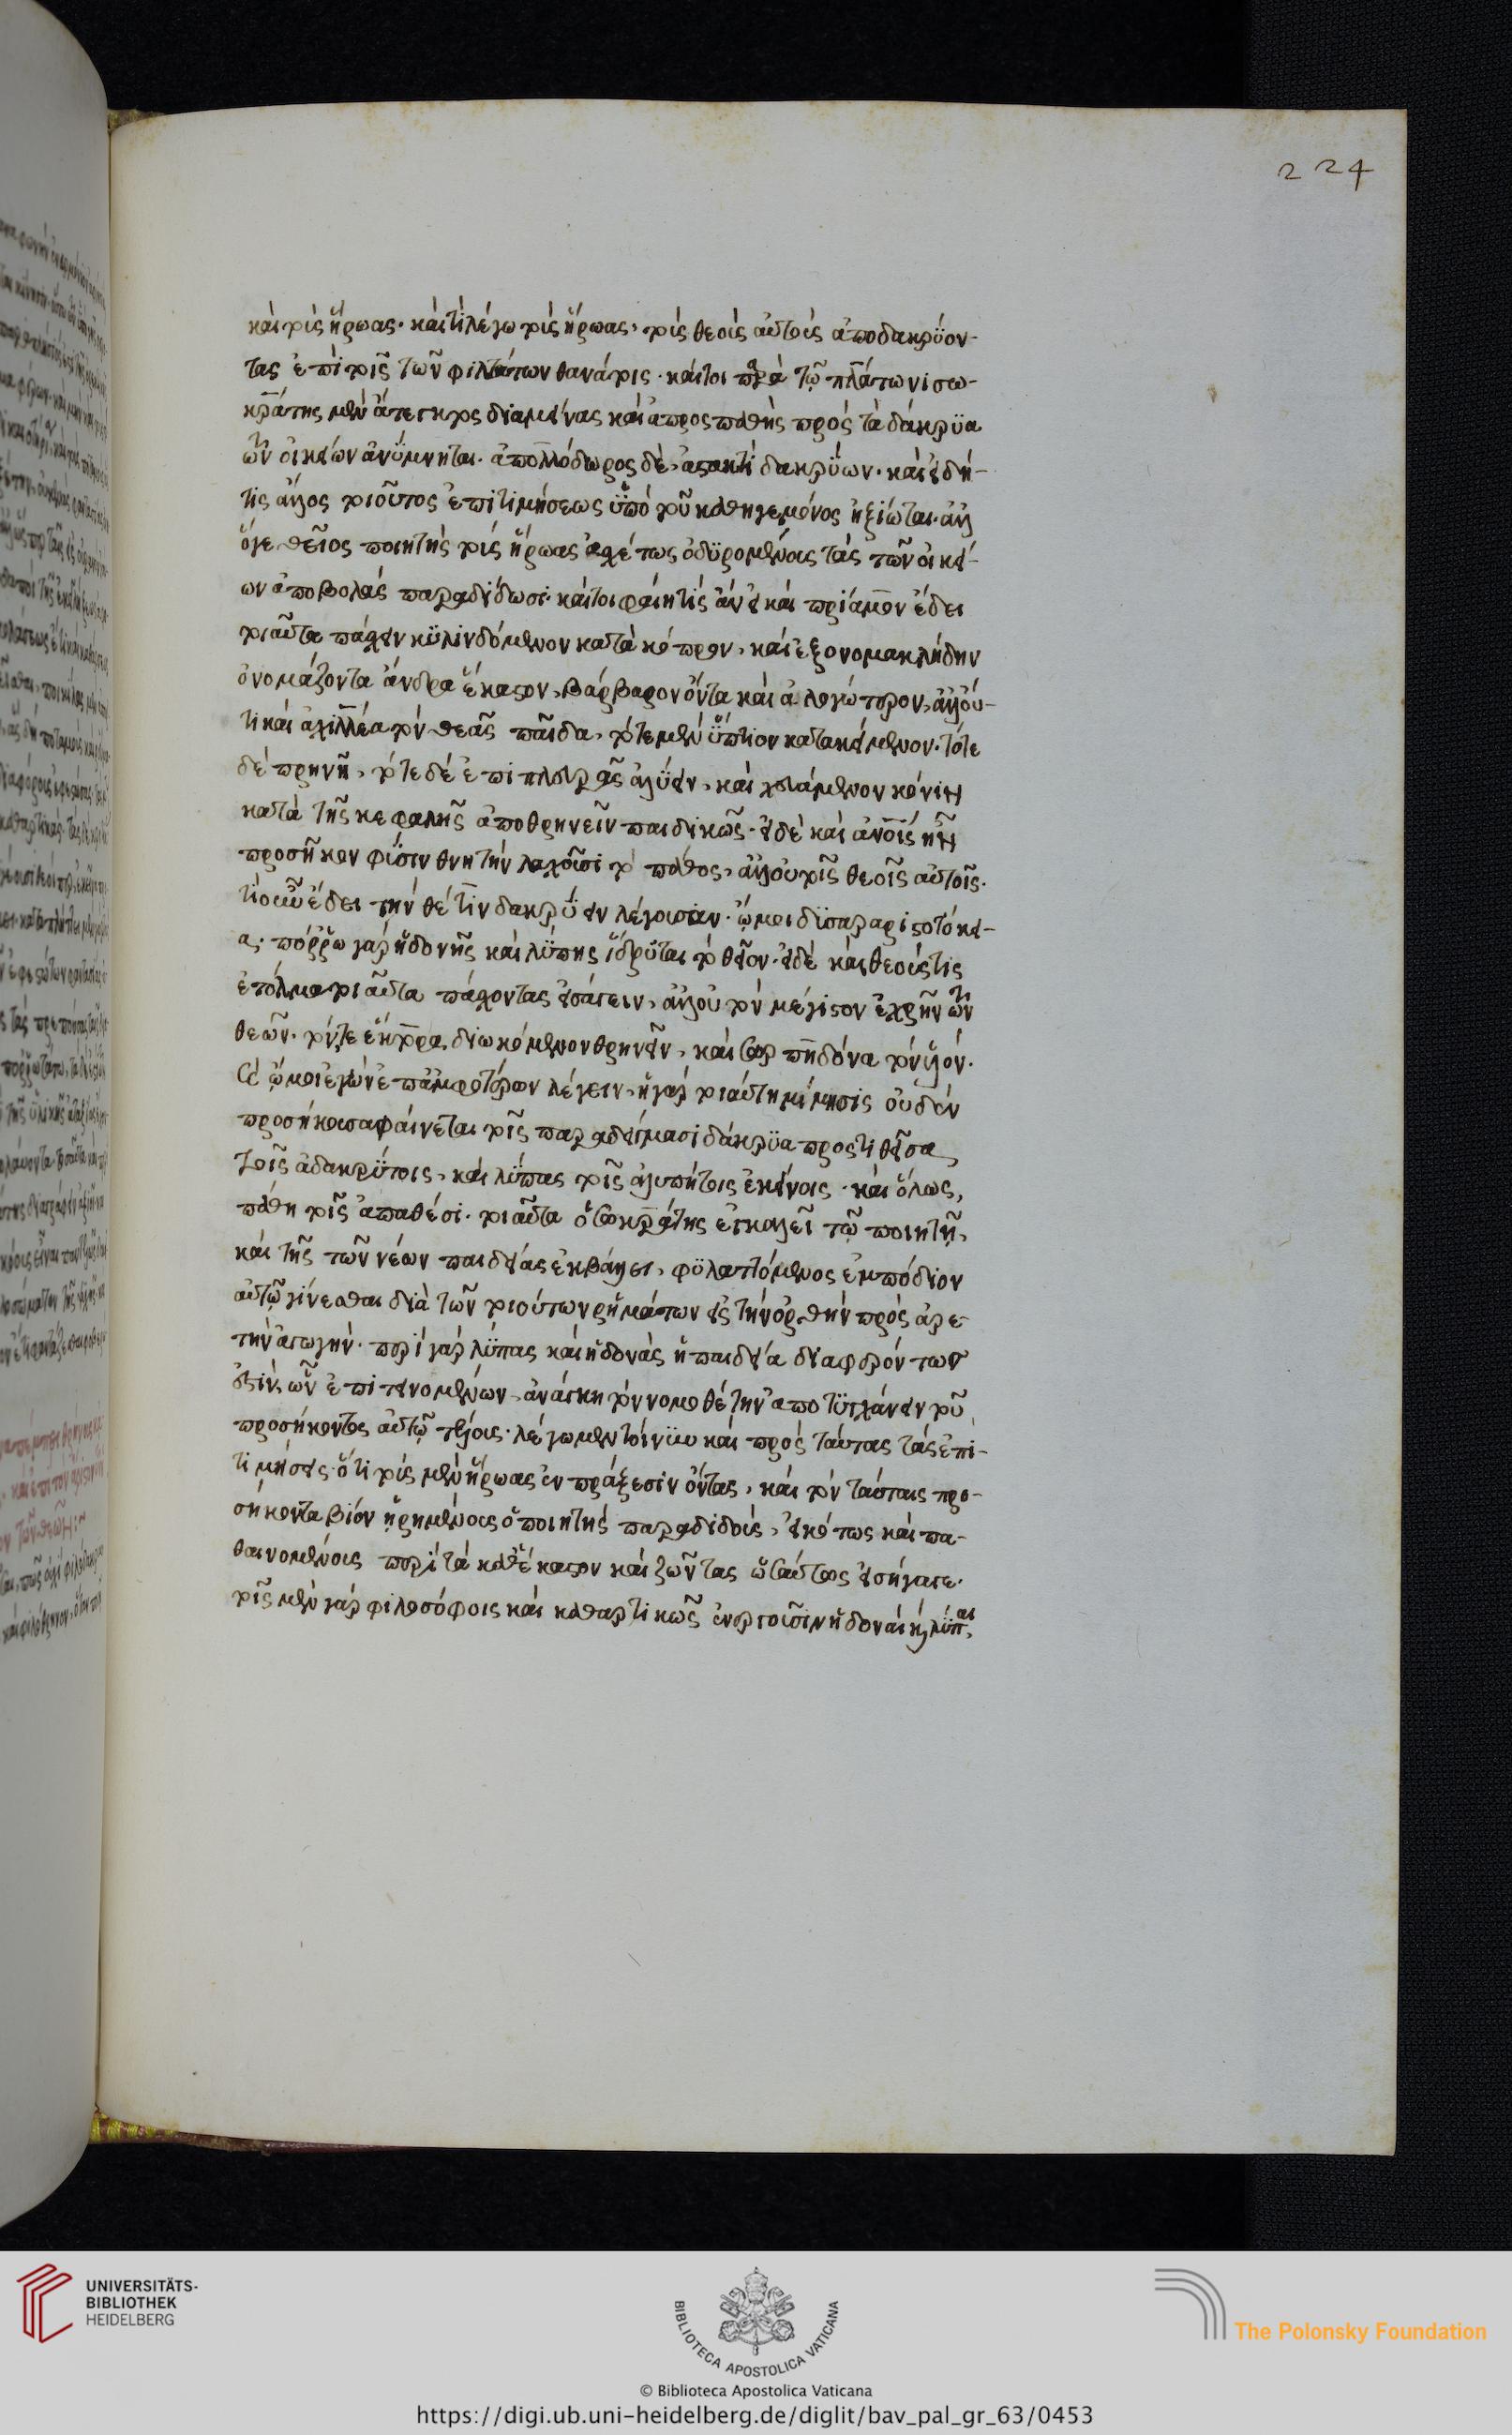 224
καὶ τοὺς ἥρωας. καὶ τί λέγω τοὺς ἥρωας, τοὺς θεοὺς αὐτοὺς ἀποδακρύον-
τας ἐπὶ τοῖς τῶν φιλτάτων θανάτοις. καίτοι παρὰ τῷ πλάτωνι σω-
κράτης μὲν ἄτεγκτος διαμείνας καὶ ἀπροσπαθὴς πρὸς τὰ δάκρυα
τῶν οἰκείων ἀνύμνηται. ἀπολλόδωρος δὲ, ἀστακτὶ δακρύων. καὶ εἰ δή-
τις ἄλλος τοιοῦτος ἐπιτιμήσεως ὑπὸ τοῦ καθηγεμόνος ἠξίωται. ἀλλ
ὅγε θεῖος ποιητὴς τοὺς ἥρωας ἀσχέτως ὀδυρομένους τὰς τῶν οἰκεί-
ων ἀποβολὰς παραδίδωσι. καίτοι φαίη τίς ἂν εἰ καὶ πρίαμον ἔδει
τοιαῦτα πάσχειν κυλινδόμενον κατὰ κόπρον, καὶ ἐξονομακλήδην
ὀνομάζοντα ἄνδρα ἕκαστον, βάρβαρον ὄντα καὶ ἀλογώτερον, ἀλλ' οὐ-
τι καὶ ἀχιλλέα τὸν θεᾶς παῖδα, τότε μὲν ὕπτιον κατακείμενον. τότε
δὲ πρηνῆ, τότε δὲ ἐπὶ πλευρᾶς ἀλύειν, καὶ χεάμενον κόνιν
κατὰ τῆς κεφαλῆς ἀποθρηνεῖν παιδικῶς. εἰ δὲ καὶ ἀνοις ἦν
προσῆκον φύσιν θνητὴν λαχοῦσι τὸ πάθος, ἀλλ' οὐ τοῖς θεοῖς αὐτοῖς.
τί οὖν ἔδει τὴν θέτιν δακρύειν λέγουσαν. ὤμοι δυσαριστοτόκει-
α; πόρρω γὰρ ἡδονῆς καὶ λύπης ἵδρυται τὸ θεῖον. εἰ δὲ καὶ θεούς τις
ἐτόλμα τοιαῦτα πάσχοντας εἰσάγειν, ἀλλ' οὐ τὸν μέγιστον ἐχρῆν τῶν
θεῶν. τόν,τε ἕκτορα διωκόμενον θρηνεῖν, καὶ σαρπηδόνα τὸν υἱόν.
καὶ ὤμοι ἐγὼν ἐπ' ἀμφοτέρων λέγειν, ἡ γὰρ τοιαύτη μίμησις οὐδὲν
προσήκουσα φαίνεται τοῖς παραδείγμασι δάκρυα προστιθεῖσα
τοῖς ἀδακρύτοις, καὶ λύπας τοῖς ἀλυπήτοις ἐκείνοις. καὶ ὅλως,
πάθη τοῖς ἀπαθέσι. τοιαῦτα ὁ σωκράτης ἐγκαλεῖ τῷ ποιητῇ,
καὶ τῆς τῶν νέων παιδείας ἐκβάλλει, φυλαττόμενος ἐμπόδιον
αὐτῷ γίνεσθαι διὰ τῶν τοιούτων ῥημάτων εἰς τὴν ὀρθὴν πρὸς ἀρε-
τὴν ἀγωγήν. περὶ γὰρ λύπας καὶ ἡδονὰς ἡ παιδεία διαφερόντως
ἐστίν, ὧν ἐπιτεινομένων, ἀνάγκη τὸν νομοθέτην ἀποτυγχάνειν τοῦ
προσήκοντος αὐτῷ τέλους. λέγωμεν τοίνυν καὶ πρὸς ταύτας τὰς ἐπι-
τιμήσεις. ὅτι τοὺς μὲν ἥρωας ἐν πράξεσιν ὄντας, καὶ τὸν ταύταις προ-
σήκοντα βίον ᾑρημένους ὁ ποιητὴς παραδιδοὺς, εἰκότως καὶ πα-
θαινομένους περὶ τὰ καθ' ἕκαστον καὶ ζῶντας ὡσαύτως εἰσήγαγε.
τοῖς μὲν γὰρ φιλοσόφοις καὶ καθαρτικῶς ἐνεργοῦσιν ἡδοναὶ καὶ λύπαι
UNIVERSITÄTS-
BIBLIOTHEK
HEIDELBERG
BIBLIOTECA APOSTOLICA VATICANA
The Polonsky Foundation
© Biblioteca Apostolica Vaticana
https://digi.ub.uni-heidelberg.de/diglit/bav_pal_gr_63/0453